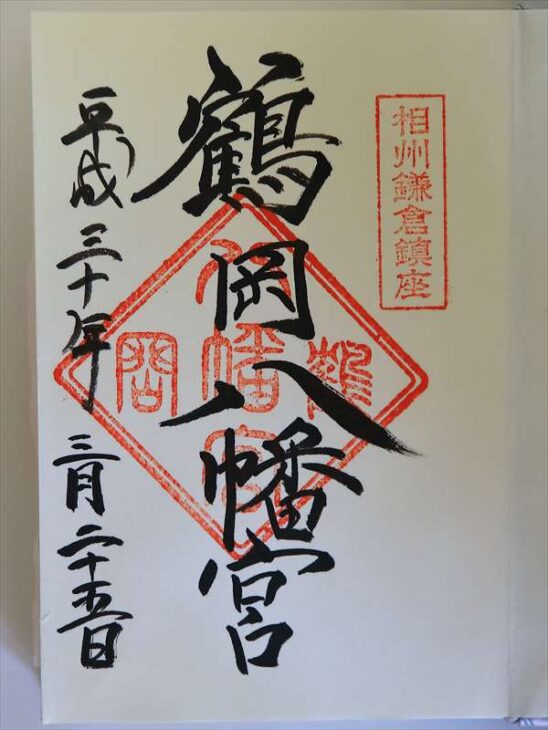 相州鎌倉鎮座
鶴岡八幡宮
鶴岡八幡宮
平成三十年三月二十五日